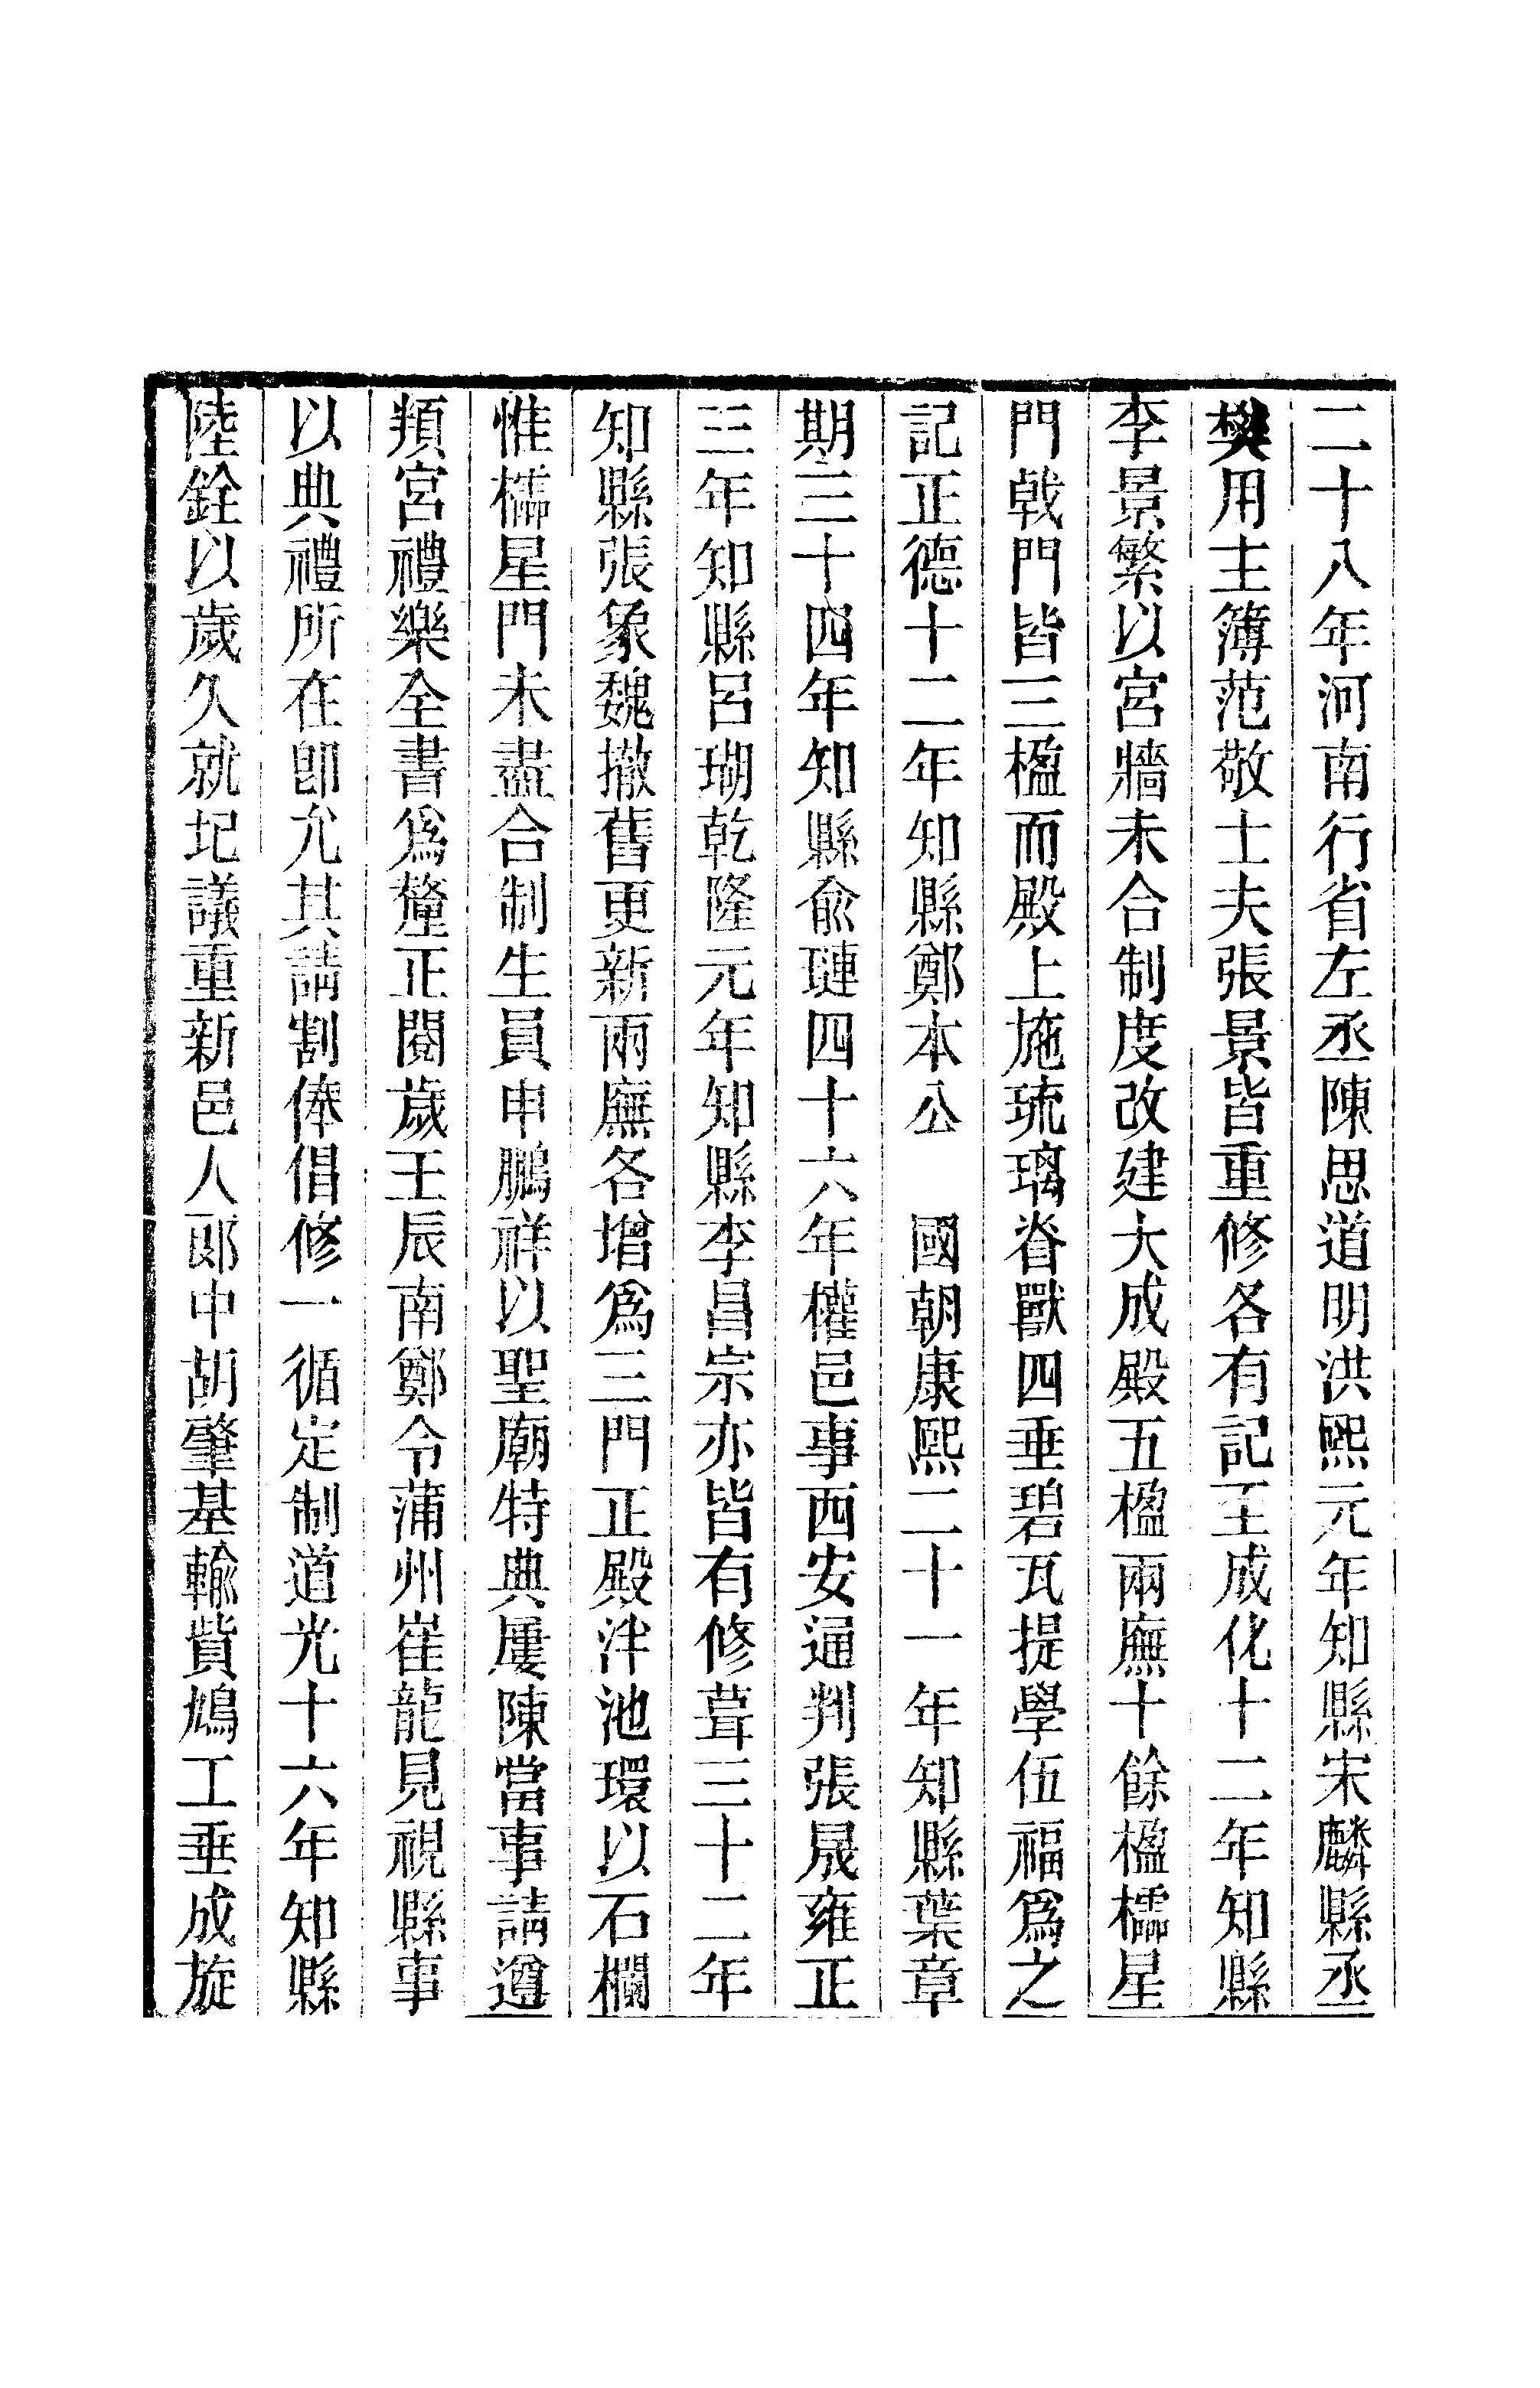 二十八年河南行省左丞陳思道明洪熙元年知縣宋麟縣丞
樊用主簿范敬士夫張景皆重修各有記至成化十二年知縣
李景繁以宮牆未合制度改建大成殿五楹兩廡十餘楹櫺星
門戟門皆三楹而殿上施琉璃脊獸四垂碧瓦提學伍福爲之
記正德十二年知縣鄭本公　國朝康熙二十一年知縣葉章
期三十四年知縣兪璉四十六年權邑事西安通判張晟雍正
三年知縣呂瑚乾隆元年知縣李昌宗亦皆有修葺三十二年
知縣張象魏撤舊更新兩廡各增爲三門正殿泮池環以石欄
惟櫺星門未盡合制生員申鵬祥以聖廟特典屢陳當事請遵
頖宮禮樂全書爲釐正閱歲壬辰南鄭令蒲州崔龍見視縣事
以典禮所在卽允其請割俸倡修一循定制道光十六年知縣
陸銓以歲久就圮議重新邑人郎中胡肇基輸貲鳩工垂成旋